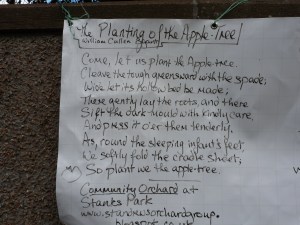 The Planting of the Apple-Tree
William Cullen Bryant
Come, let us plant the Apple-tree.
Cleave the tough greensward with the spade;
Wide let its hollow bed be made;
There gently lay the roots, and there
Sift the dark mould with kindly care,
And press it o'er them tenderly,
As, round the sleeping infant's feet,
We softly fold the cradle sheet;
So plant we the apple-tree.
Community Orchard at
Stanks Park